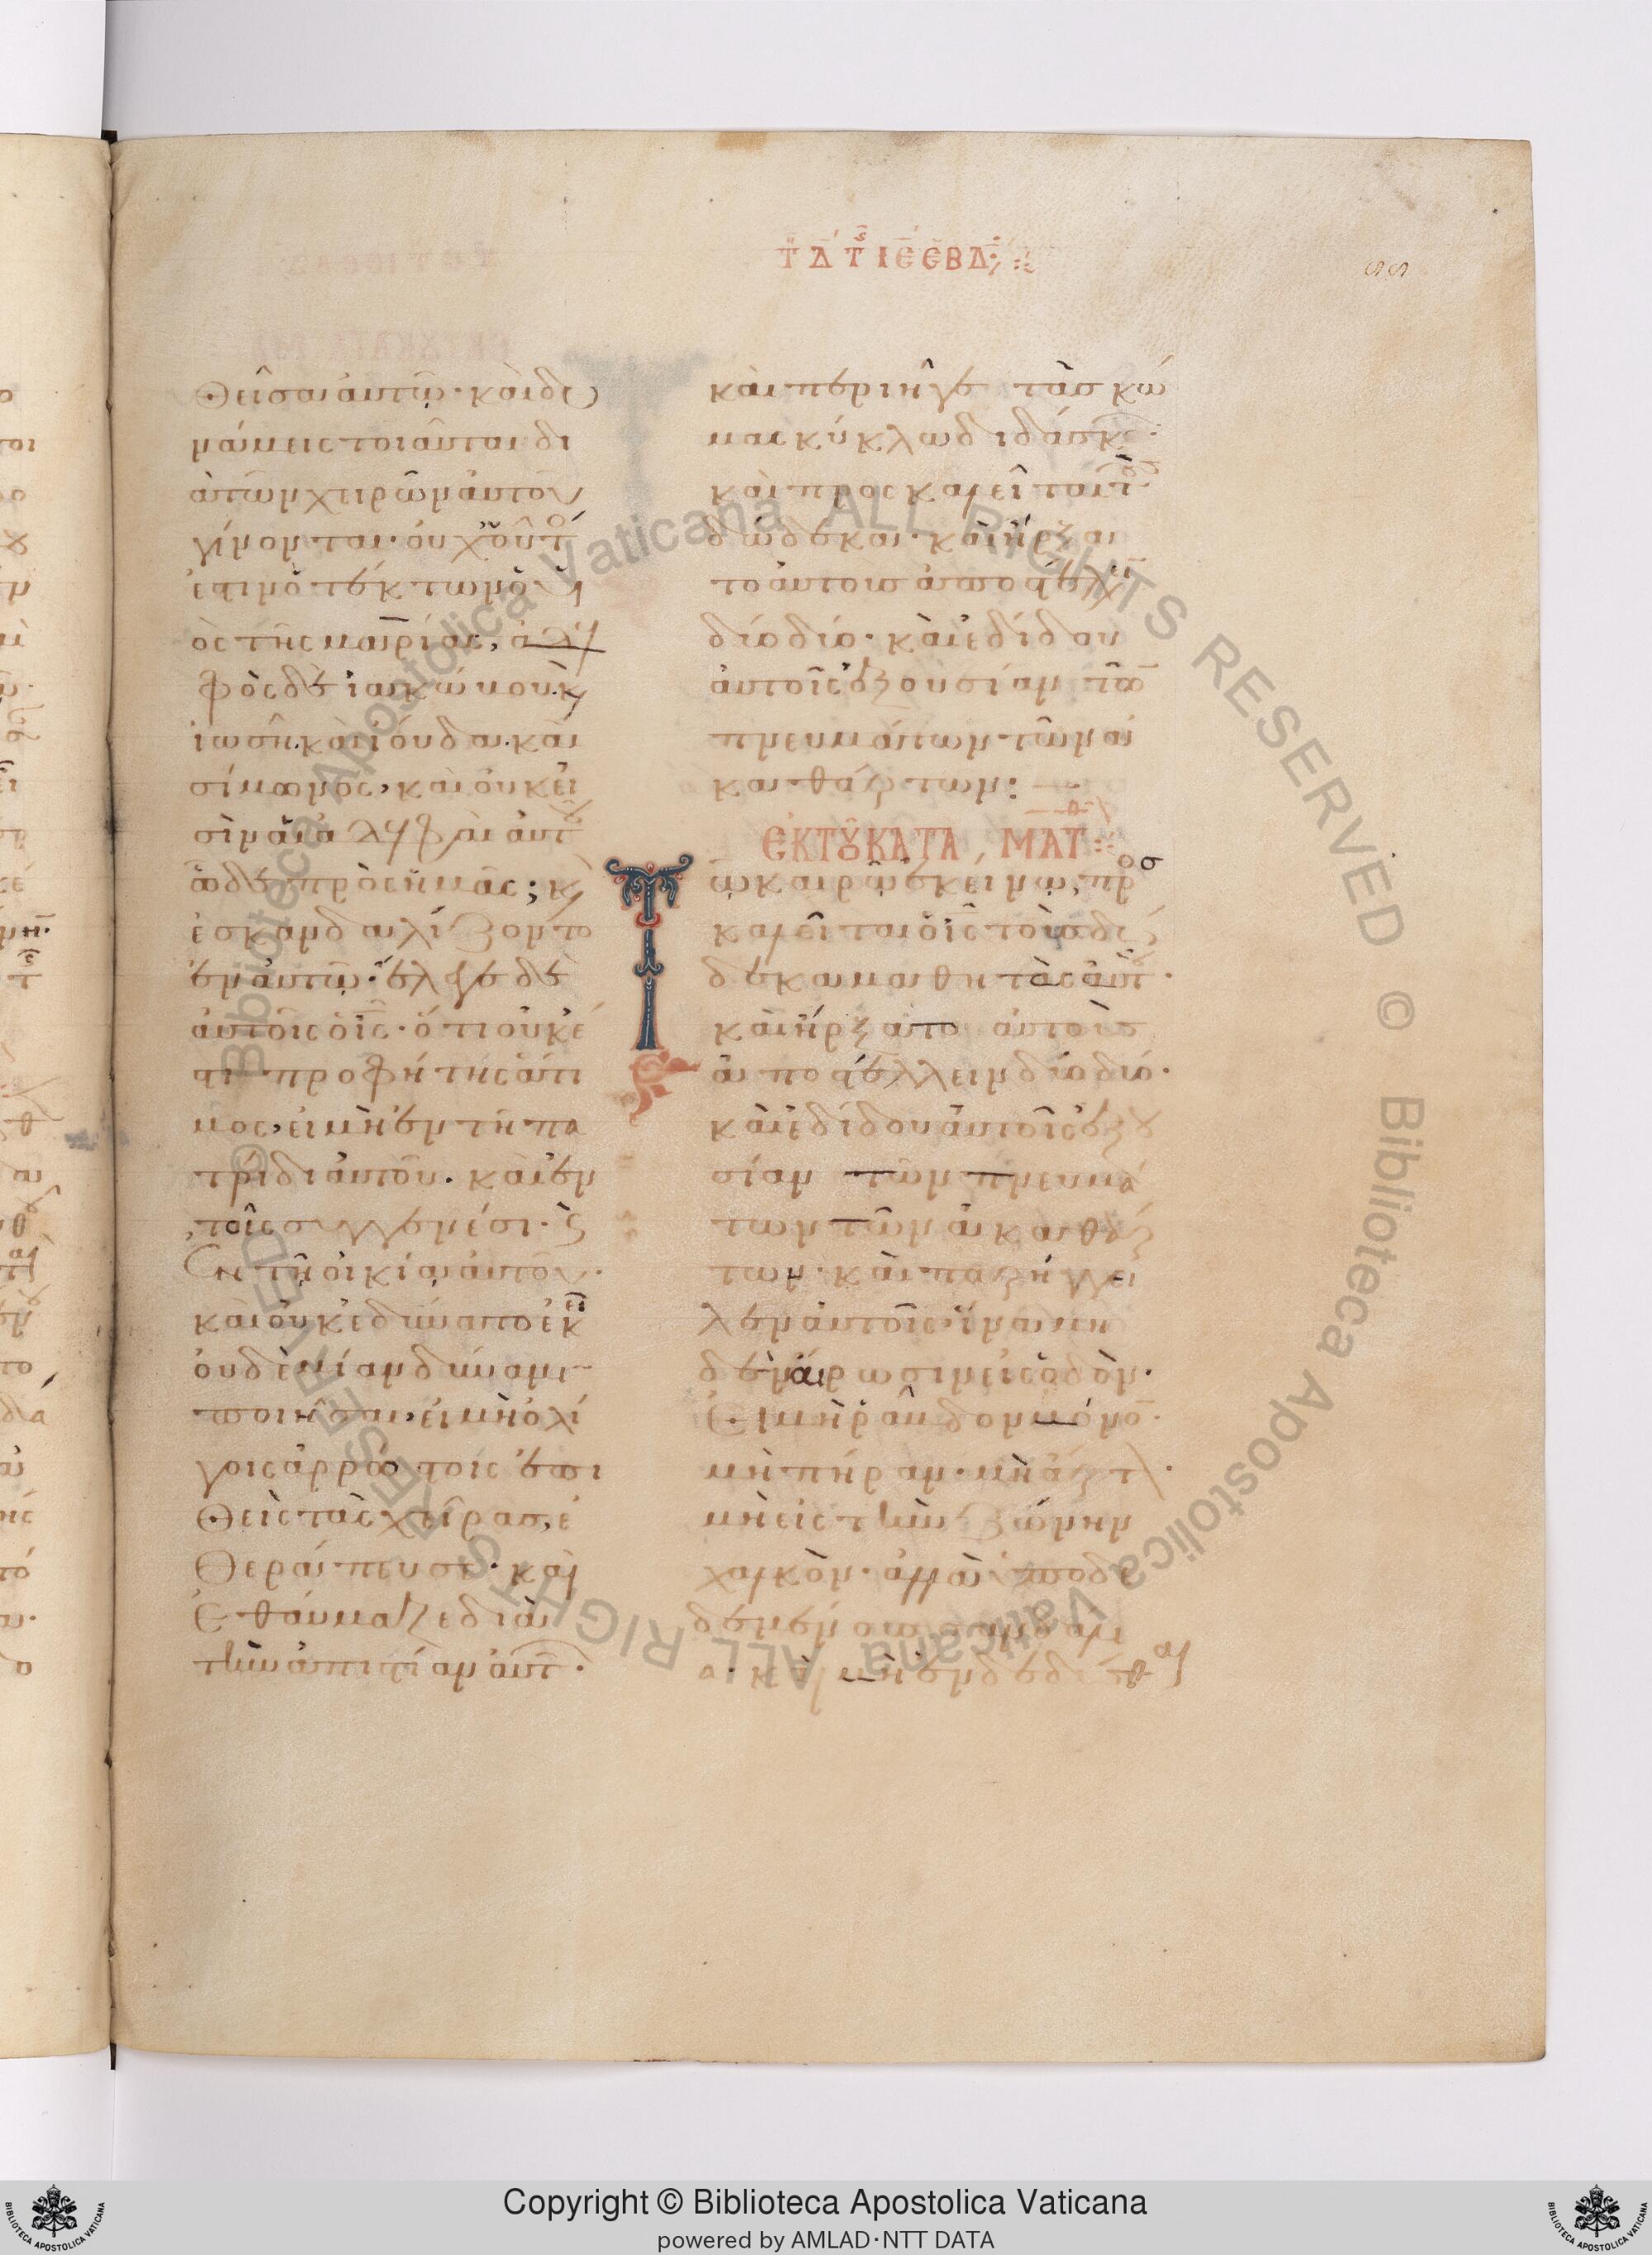 Τῇ Δ τῆς ΙΕ ΕΒΔ
θεῖσα αὐτῶ· καὶ δυ
νάμεις τοιαῦται δι
ὰ τῶν χειρῶν αὐτοῦ
γίνονται· οὐχ οὗτό
ἐστιν ὁ τέκτων ὁ υἱ
ὸς τῆς μαρίας, ἀδελ
φὸς δὲ ἰακώβου· κ
ἰωσῆ· καὶ ἰούδα· καὶ
σίμωνος, καὶ οὐκ εἰ
σὶν αἱ ἀδελφαὶ αὐτοῦ
ὧδε πρὸς ἡμᾶς; κ
ἐσκανδαλίζοντο
ἐν αὐτῶ· ἔλεγε δὲ
αὐτοῖς ὁ ις· ὅτι οὐκ ἔ
στι προφήτης ἄτι
μος, εἰ μὴ ἐν τῆ πα
τρίδι αὐτοῦ· καὶ ἐν
τοῖς συγγενέσι· κ
ἐν τῆ οἰκία αὐτοῦ·
καὶ οὐκ ἐδύνατο ἐκεῖ
οὐδεμίαν δύναμι
ποιῆσαι, εἰ μὴ ὀλί
γοις ἀρρώστοις ἐπι
θεὶς τὰς χεῖρας, ἐ
θεράπευσε· καὶ
ἐθαύμαζε διὰ
τὴν ἀπιστίαν αὐτ·
καὶ περιῆγε τὰς κώ
μας κύκλω διδάσκ·
καὶ προσκαλεῖται τοὺς
δώδεκα· καὶ ἤρξα
το αὐτοὺς ἀποστέλλειν
δύο δύο· καὶ ἐδίδου
αὐτοῖς ἐξουσίαν τῶ
πνευμάτων τῶν ἀ
καθάρτων:
ἘΚ ΤΟΥ ΚΑΤΑ ΜΑΤ
ῶ καιρῶ ἐκείνω, προσ
καλεῖται ὁ ις τοὺς δώ
δεκα μαθητὰς αὐτοῦ·
καὶ ἤρξατο αὐτοὺς
ἀποστέλλειν δύο δύο·
καὶ ἐδίδου αὐτοῖς ἐξου
σίαν τῶν πνευμά
των τῶν ἀκαθάρ
των· καὶ παρήγγει
λεν αὐτοῖς· ἵνα μη
δὲν αἴρωσιν εἰς ὁδὸν·
εἰ μὴ ῥάβδον μόνον·
μὴ πήραν· μὴ ἄρτ·
μὴ εἰς τὴν ζώνην
χαλκὸν· ἀλλ' ὑποδε
δεμένους σανδάλι
α· καὶ μὴ ἐνδεδύσθαι
Copyright © Biblioteca Apostolica Vaticana
powered by AMLAD·NTT DATA